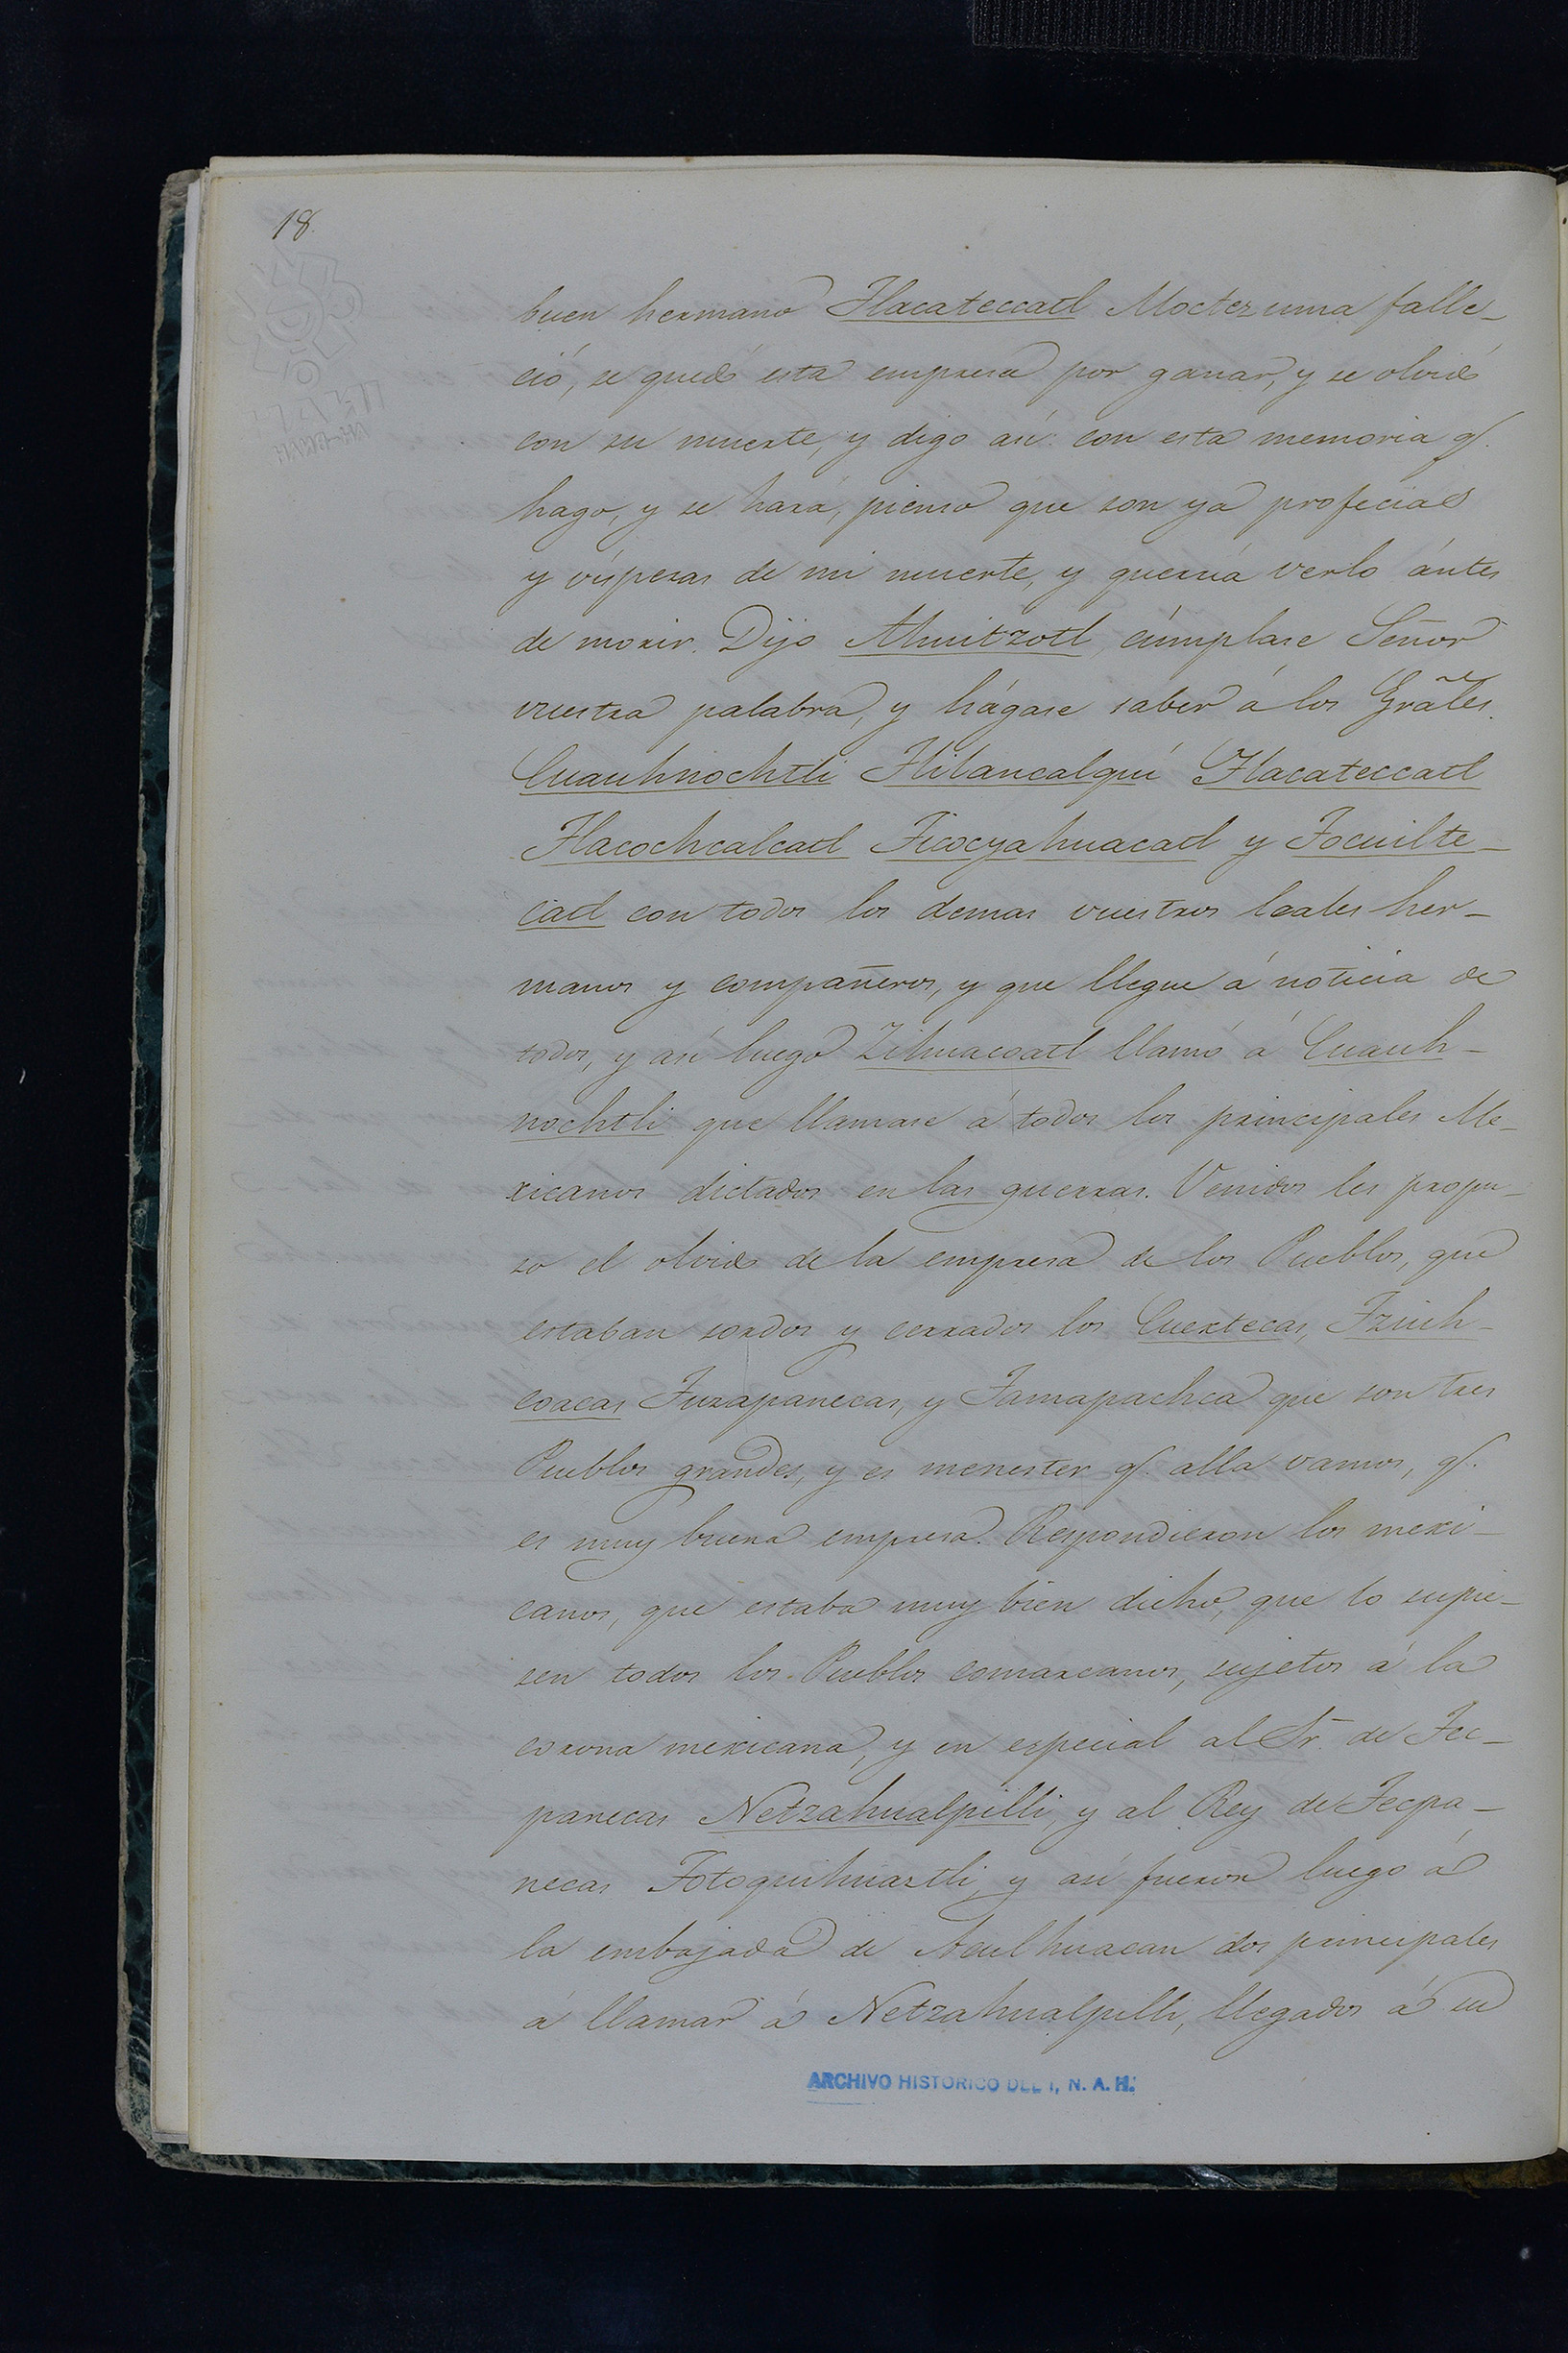 18.
buen hermano Tlacateccatl Moctezuma falle-
ció, se quedó esta empresa por ganar, y se olvidó
con su muerte, y digo así: con esta memoria q.
hago, y se hará, pienso que son ya profecias
y vísperas de mi muerte, y querría verlo ántes
de morir. Dijo Ahuitzotl, cúmplase Señor
vuestra palabra, y hágase saber á los Grãles.
Cuauhnochtli Tlilancalquí Tlacateccatl
Tlacochcalcatl Ticocyahuacatl y Tocuilte-
catl con todos los demas vuestros leales her-
manos y compañeros, y que llegue á noticia de
todos, y así luego Zihuacoatl llamó á Cuauh-
nochtli que llamase á todos los principales Me-
xicanos dictados en las guerras. Venidos les propu-
so el olvido de la empresa de los Pueblos, que
estaban sordos y cerrados los Cuextecas, Tziuh-
coacas Tuzapanecas, y Tamapachca que son tres
Pueblos grandes, y es menester q. alla vamos, q.
es muy buena empresa. Respondieron los mexi-
canos, que estaba muy bien dicho, que lo supie-
sen todos los Pueblos comarcanos, sujetos á la
corona mexicana, y en especial al Sr. de Tec-
panecas Netzahualpilli, y al Rey de Tecpa-
necas Totoquihuaztli, y así fueron luego á
la embajada de Aculhuacan dos principales
á llamar á Netzahualpilli, llegados á su
ARCHIVO HISTORICO DEL I, N. A. H.